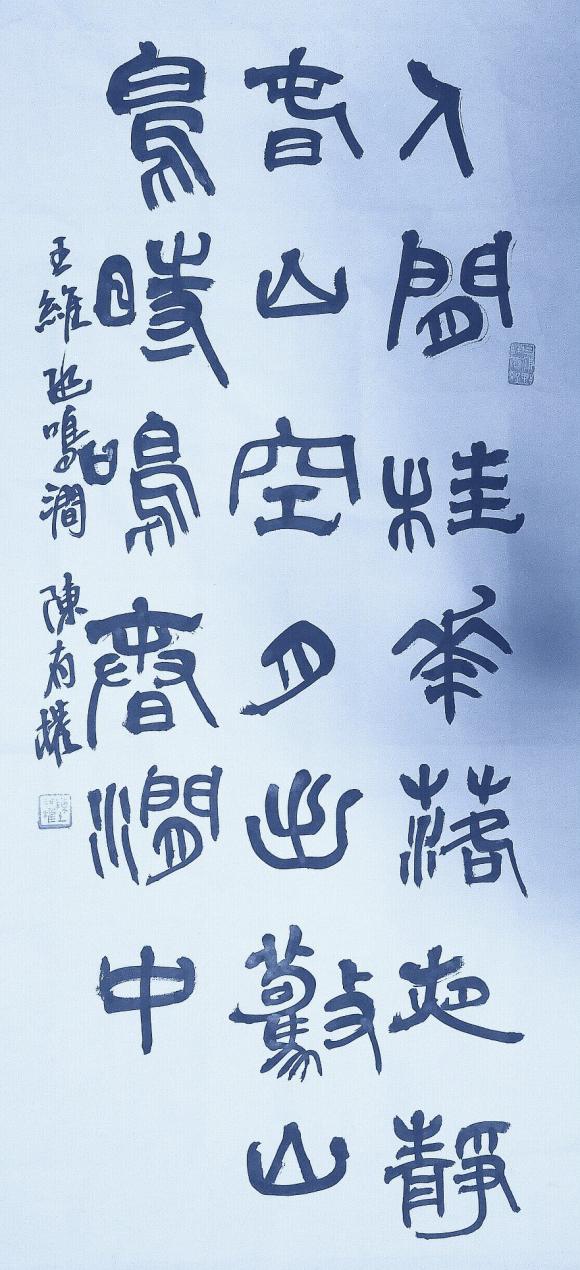 人閒桂華落夜靜
春山空月出驚山
鳥時鳴春澗中
王維鳥鳴澗 陳有